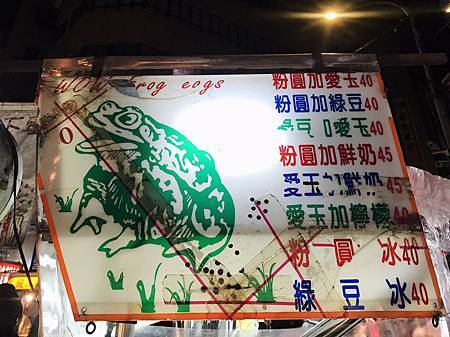 WOW frog eggs
粉圓加愛玉40
粉圓加綠豆40
綠豆加愛玉40
粉圓加鮮奶45
愛玉加鮮奶45
愛玉加檸檬40
粉圓冰40
綠豆冰40